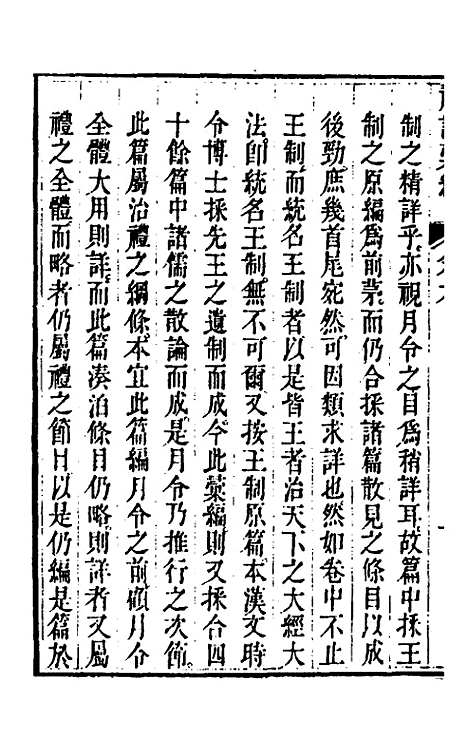 制之精詳乎亦視月令之目爲稍詳耳故篇中採王
制之原編爲前茅而仍合採諸篇散見之條目以成
後勁庶幾首尾宛然可因類求詳也然如卷中不止
王制而統名王制者以是皆王者治天下之大經大
法卽統名王制無不可爾又按王制原篇本漢文時
令博士採先王之遺制而成今此彙編則又採合四
十餘篇中諸儒之散論而成是月令乃推行之次節
此篇屬治禮之綱條本宜此篇編月令之前顧月令
全體大用則詳而此篇湊泊條目仍略則詳者又屬
禮之全體而略者仍屬禮之節目以是仍編是篇於